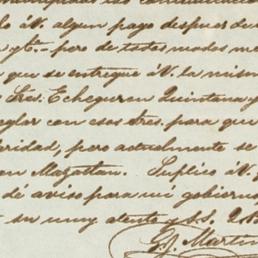 lo á V. algun pago despues de
y Cª.- pero de todos modos me
que se entregue á V. la misma
Sres. Echeguren Quintana y
eglar con esos Sres. para que
ridad, pero actualmente se
en Mazatlan. Suplico á V.
dé aviso para mi gobierno
su muy atento y S.S. Q.B.
Martin